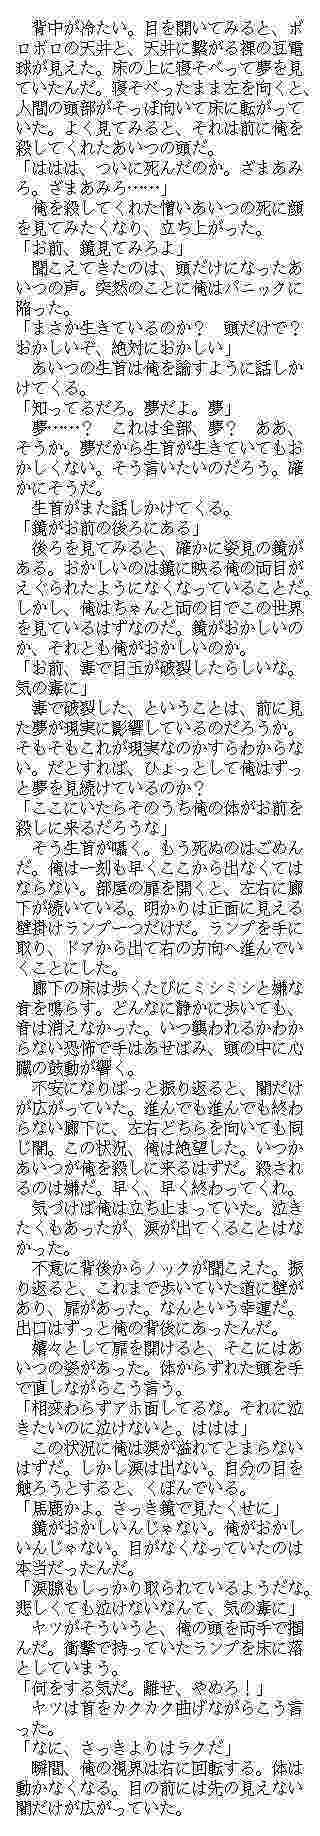 背中が冷たい。目を開いてみると、ボ
ロボロの天井と、天井に繋がる裸の豆電
球が見えた。床の上に寝そべって夢を見
ていたんだ。寝そべったまま左を向くと、
人間の頭部がそっぽ向いて床に転がって
いた。よく見てみると、それは前に俺を
殺してくれたあいつの頭だ。
「ははは、ついに死んだのか。ざまあみ
ろ。ざまあみろ……」
　俺を殺してくれた憎いあいつの死に顔
を見てみたくなり、立ち上がった。
「お前、鏡見てみろよ」
　聞こえてきたのは、頭だけになったあ
いつの声。突然のことに俺はパニックに
陥った。
「まさか生きているのか？　頭だけで？
おかしいぞ、絶対におかしい」
　あいつの生首は俺を諭すように話しか
けてくる。
「知ってるだろ。夢だよ。夢」
　夢……？　これは全部、夢？　ああ、
そうか。夢だから生首が生きていてもお
かしくない。そう言いたいのだろう。確
かにそうだ。
　生首がまた話しかけてくる。
「鏡がお前の後ろにある」
　後ろを見てみると、確かに姿見の鏡が
ある。おかしいのは鏡に映る俺の両目が
えぐられたようになくなっていることだ。
しかし、俺はちゃんと両の目でこの世界
を見ているはずなのだ。鏡がおかしいの
か、それとも俺がおかしいのか。
「お前、毒で目玉が破裂したらしいな。
気の毒に」
　毒で破裂した、ということは、前に見
た夢が現実に影響しているのだろうか。
そもそもこれが現実なのかすらわからな
い。だとすれば、ひょっとして俺はずっ
と夢を見続けているのか？
「ここにいたらそのうち俺の体がお前を
殺しに来るだろうな」
　そう生首が囁く。もう死ぬのはごめん
だ。俺は一刻も早くここから出なくては
ならない。部屋の扉を開くと、左右に廊
下が続いている。明かりは正面に見える
壁掛けランプ一つだけだ。ランプを手に
取り、ドアから出て右の方向へ進んでい
くことにした。
　廊下の床は歩くたびにミシミシと嫌な
音を鳴らす。どんなに静かに歩いても、
音は消えなかった。いつ襲われるかわか
らない恐怖で手はあせばみ、頭の中に心
臓の鼓動が響く。
　不安になりばっと振り返ると、闇だけ
が広がっていた。進んでも進んでも終わ
らない廊下に、左右どちらを向いても同
じ闇。この状況、俺は絶望した。いつか
あいつが俺を殺しに来るはずだ。殺され
るのは嫌だ。早く、早く終わってくれ。
　気づけば俺は立ち止まっていた。泣き
たくもあったが、涙が出てくることはな
かった。
　不意に背後からノックが聞こえた。振
り返ると、これまで歩いていた道に壁が
あり、扉があった。なんという幸運だ。
出口はずっと俺の背後にあったんだ。
　嬉々として扉を開けると、そこにはあ
いつの姿があった。体からずれた頭を手
で直しながらこう言う。
「相変わらずアホ面してるな。それに泣
きたいのに泣けないと。ははは」
　この状況に俺は涙が溢れてとまらない
はずだ。しかし涙は出ない。自分の目を
触ろうとすると、くぼんでいる。
「馬鹿かよ。さっき鏡で見たくせに」
　鏡がおかしいんじゃない。俺がおかし
いんじゃない。目がなくなっていたのは
本当だったんだ。
「涙腺もしっかり取られているようだな。
悲しくても泣けないなんて、気の毒に」
　ヤツがそういうと、俺の頭を両手で掴
んだ。衝撃で持っていたランプを床に落
としていまう。
「何をする気だ。離せ、やめろ！」
　ヤツは首をカクカク曲げながらこう言
った。
「なに、さっきよりはラクだ」
　瞬間、俺の視界は右に回転する。体は
動かなくなる。目の前には先の見えない
闇だけが広がっていた。